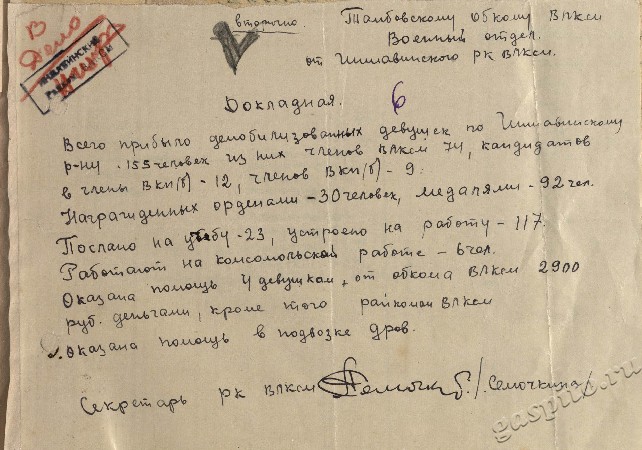 В
Дело
вторично.
Тамбовскому Обкому ВЛКСМ
Военный отдел.
от Инжавинского РК ВЛКСМ.
Докладная. 6
Всего прибыло демобилизованных девушек по Инжавинскому
р-ну - 155 человек из них членов ВЛКСМ 74, кандидатов
в члены ВКП/б/ - 12, членов ВКП/б/ - 9.
Награжденных орденами - 30 человек, медалями - 92 чел.
Послано на учебу - 23, устроено на работу - 117.
Работают на комсомольской работе - 6 чел.
Оказана помощь 4 девушкам, от обкома ВЛКСМ 2900
руб. деньгами, кроме того райкомом ВЛКСМ
Оказана помощь в подвозке дров.
Секретарь РК ВЛКСМ /Семочкина/
gaspito.ru